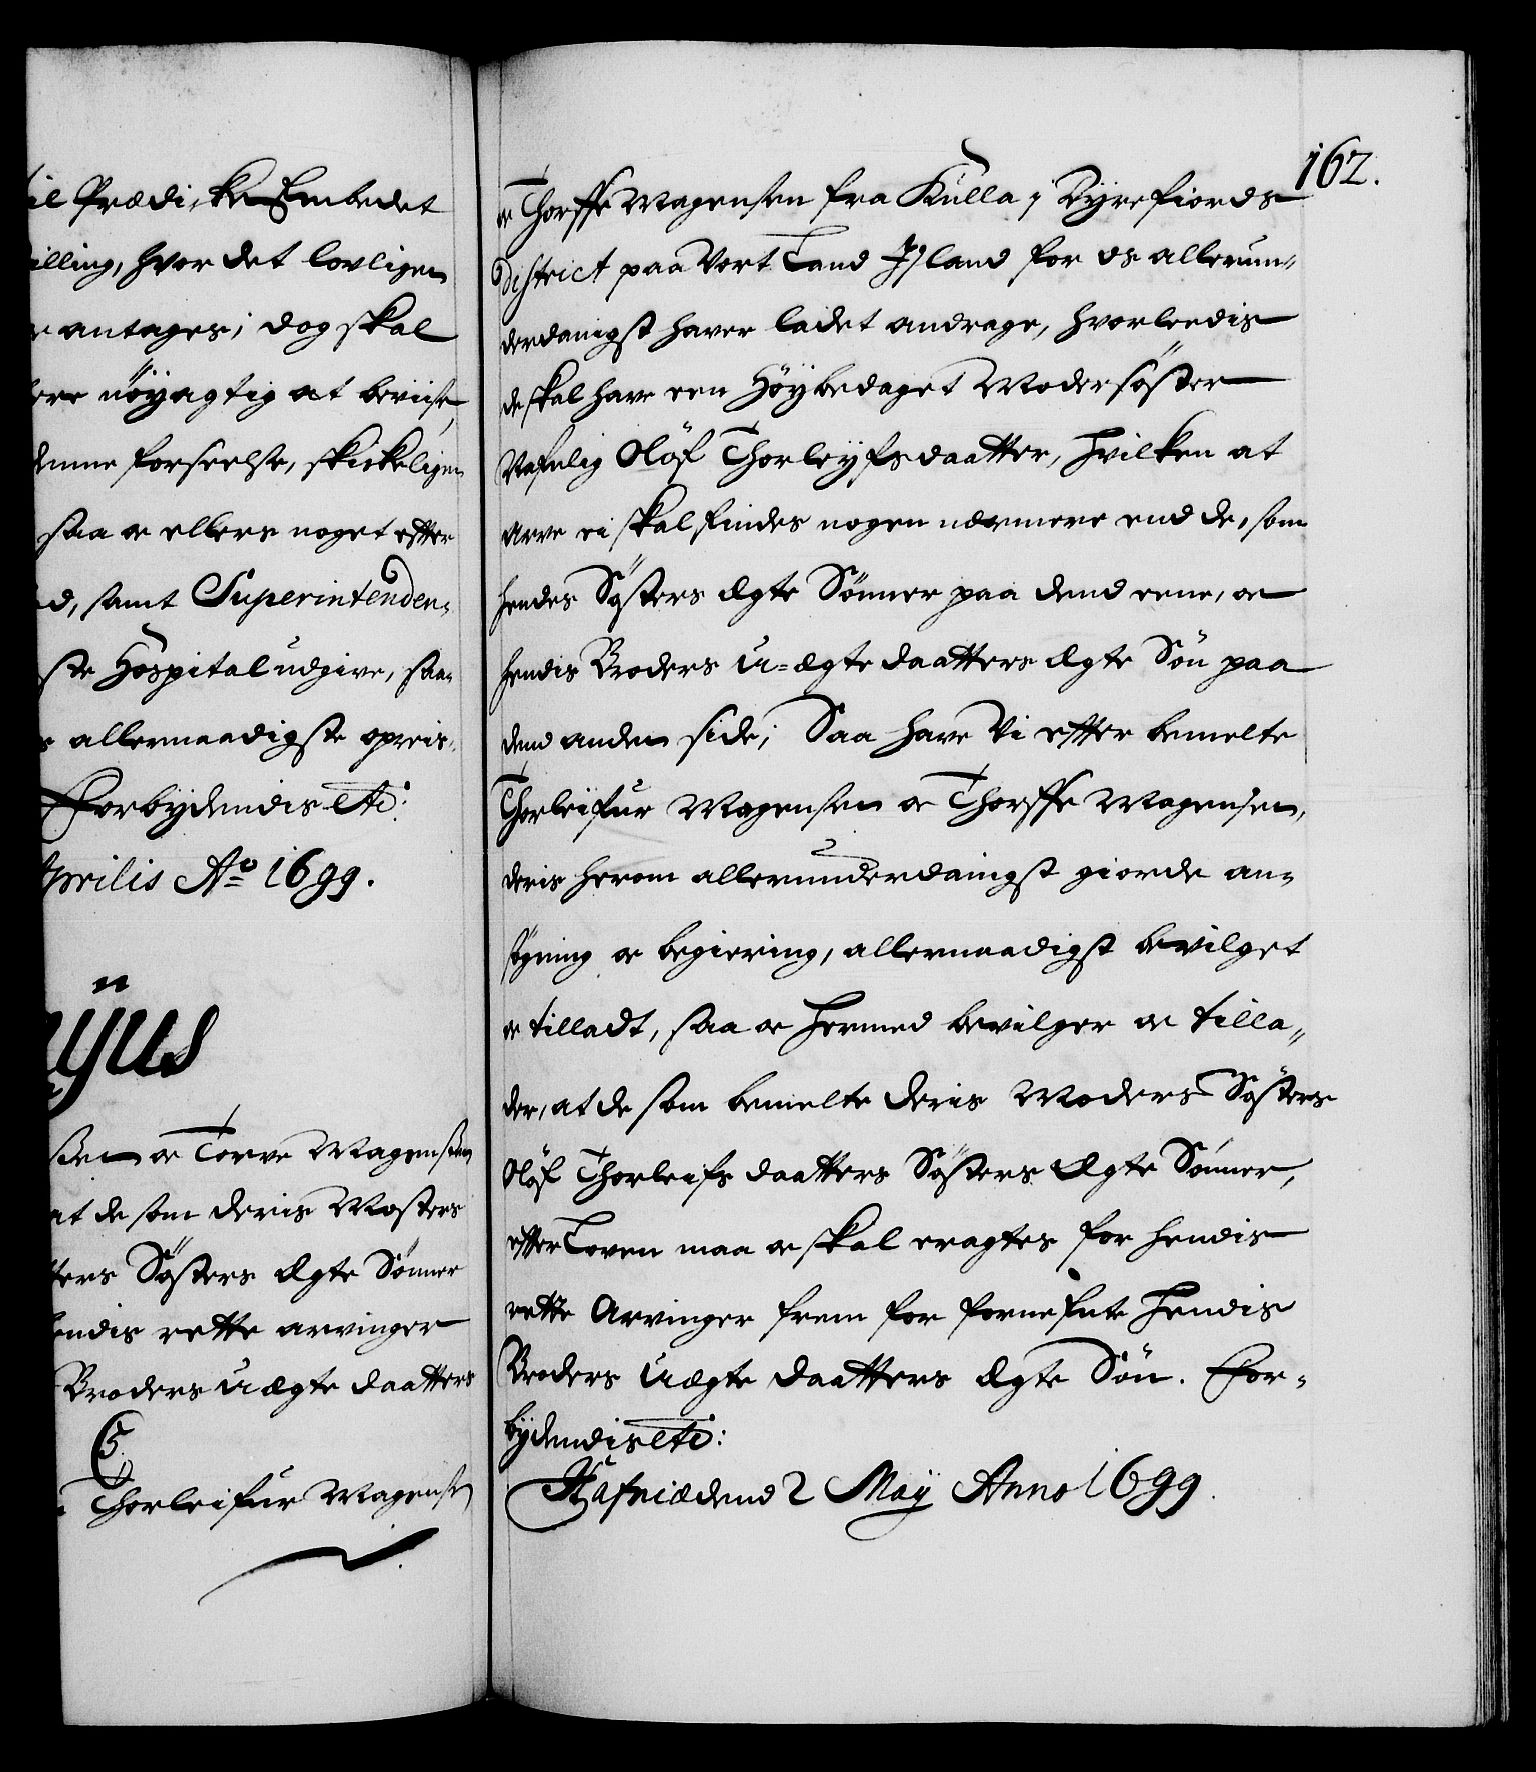 il Prædi,ke Embedet
illing, hvor det lovligen
antages; dog skal
ere nöyagtig at beviise,
denne forseelse, skickeligen
saa oc ellers noget efter
d, samt Superintenden,
ste Hospital udgive, saa,
allernaadigste opreis,
Forbydendis etc:
Aprilis Ao 1699.
Majus
sen oc Torve Magensen
at de som deris Mosters
ters Systers Ægte Sönner
hendis rette arvinger
Broders uægte daatters
C 5.
Thorleifur Magensen
162.
oc Thorffe Magensen fra Kulla i Dyrefiords
District paa Vort Land Jsland for os allerun-
derdanigst haver ladet andrage, hvorleedis
de skal have een Höybedaget Modersöster
Nafnlig Olöf Thorleyfsdaatter, hvilken at
arve ei skal findes nogen nærmere end de, som
hendes Systers Ægte Sönner paa dend eene, oc
hendis Broders U-ægte daatters Ægte Sön paa
dend anden side; Saa have Vi efter bemelte
Thorleifur Magensen oc Thorffe Magensen,
deris herom allerunderdanigst giorde an-
sögning oc begiering, allernaadigst bevilget
oc tilladt, saa oc hermed bevilger oc tilla-
der, at de som bemelte deris Moders Systers
Olöf Thorleifs daatters Systers Ægte Sönner,
efter Loven maa oc skal eragtes for hendis
rette Arvinger frem for fornefnte hendis
Broders Uægte daatters Ægte Sön. For-
bydendis etc:
Hafniæ dend 2 Maij Anno 1699.